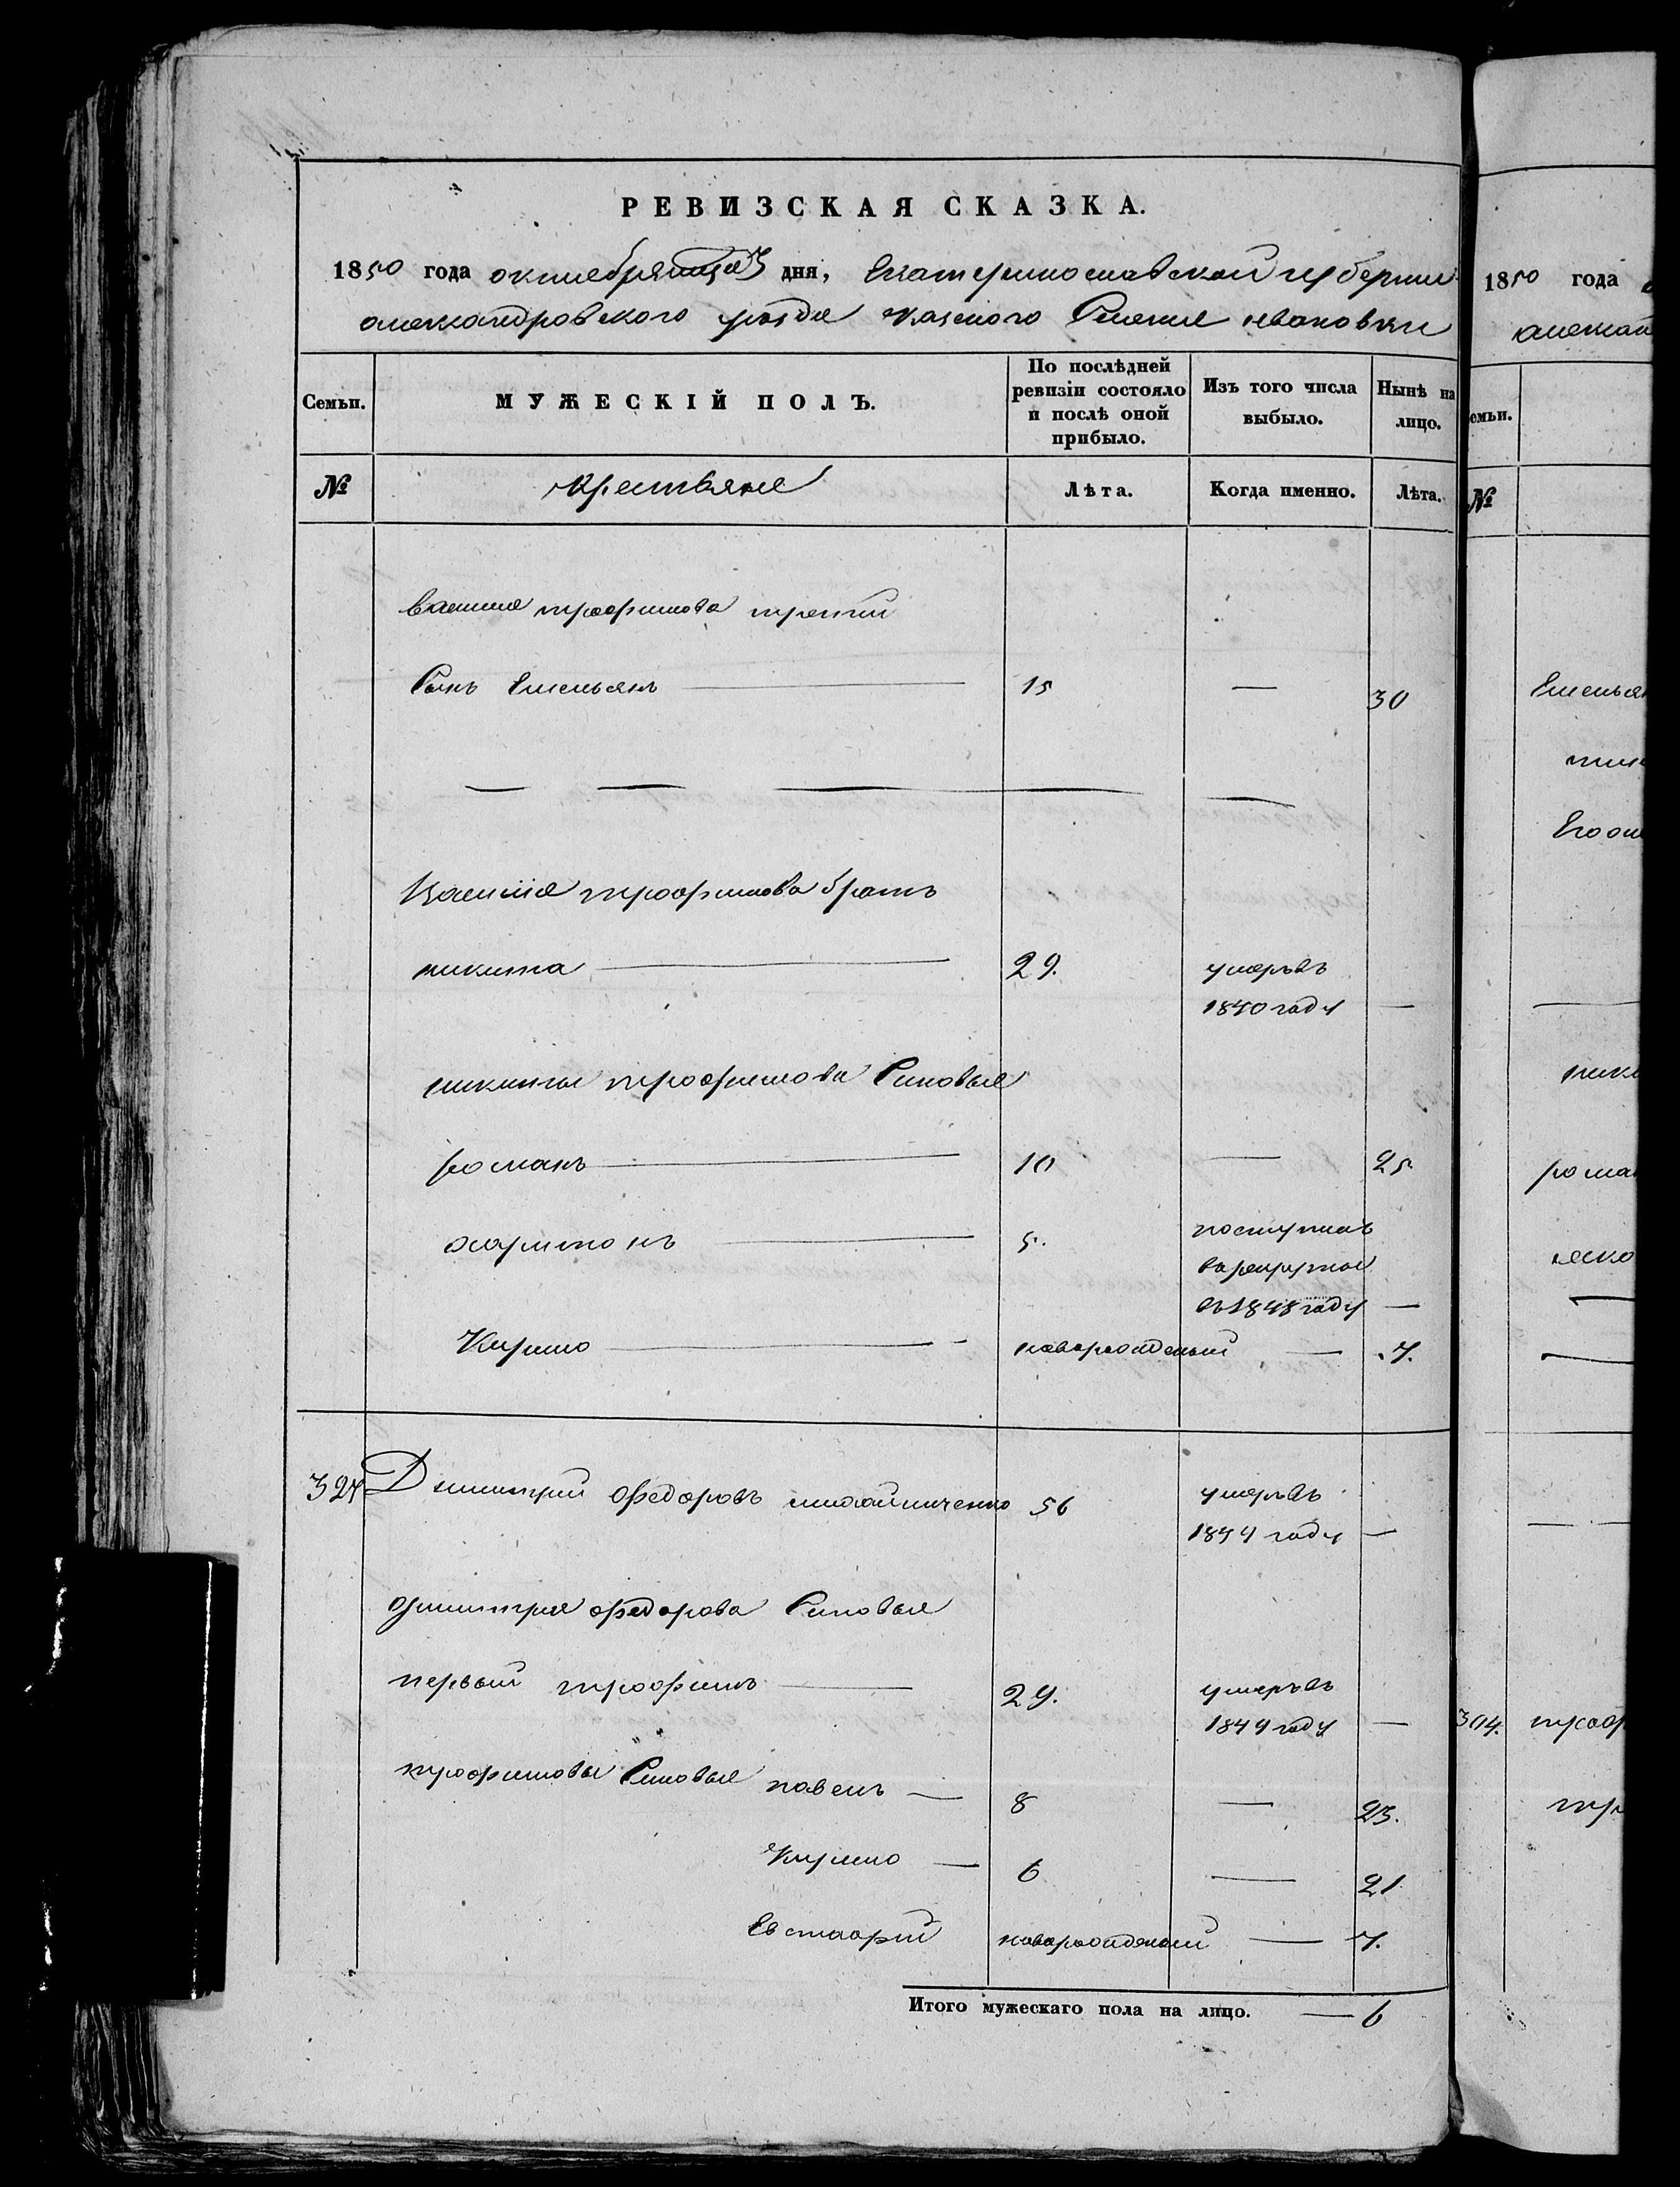 РЕВИЗСКАЯ СКАЗКА.
1850 года октября дня, Екатеринославской губернии
александровского уезда казеного Селения ивановки
Семьи. МУЖЕСКІЙ ПОЛЪ. По послѣдней ревизіи состояло и послѣ оной прибыло. Изъ того числа выбыло. Нынѣ на лицо.
№ крестьяне Лѣта. Когда именно. Лѣта.
василия трофимова третий
Сынъ Емельянъ — 15 — 30
Василия трофимова братъ
никита — 29. умеръ въ
1840 году —
никиты трофимова Синовья
романъ — 10 — 25.
харитонъ — 5. поступилъ
в рекруты
въ 1848 году —
Кирило — новорожденый — 7.
324 Дмитрий федоровъ михайличенко 56 умеръ въ
1844 году —
дмитрия федорова Синовья
первый трофимъ — 29. умеръ въ
1844 году —
трофимовы Синовья павелъ — 8 — 23.
Кирило — 6 — 21
Евстафий новорожденый — 7.
Итого мужескаго пола на лицо. — 6
1850 года
емьи.
№
рома
304.